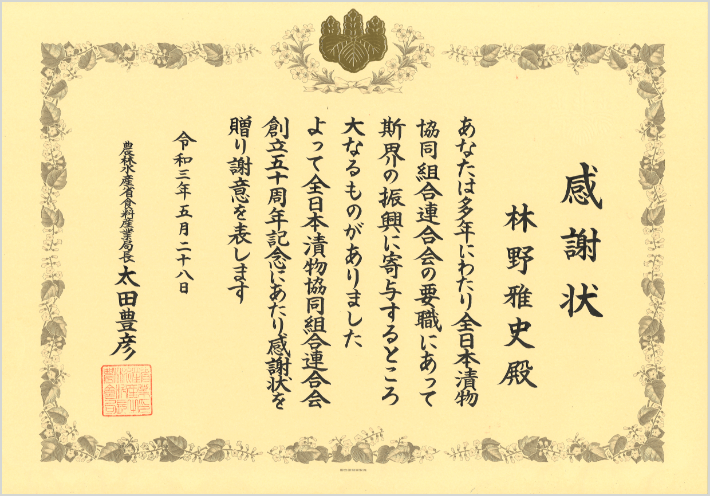 感謝状
林野雅史殿
あなたは多年にわたり全日本漬物
協同組合連合会の要職にあって
斯界の振興に寄与するところ
大なるものがありました
よって全日本漬物協同組合連合会
創立五十周年記念にあたり感謝状を
贈り謝意を表します
令和三年五月二十八日
農林水産省食料産業局長 太田豊彦